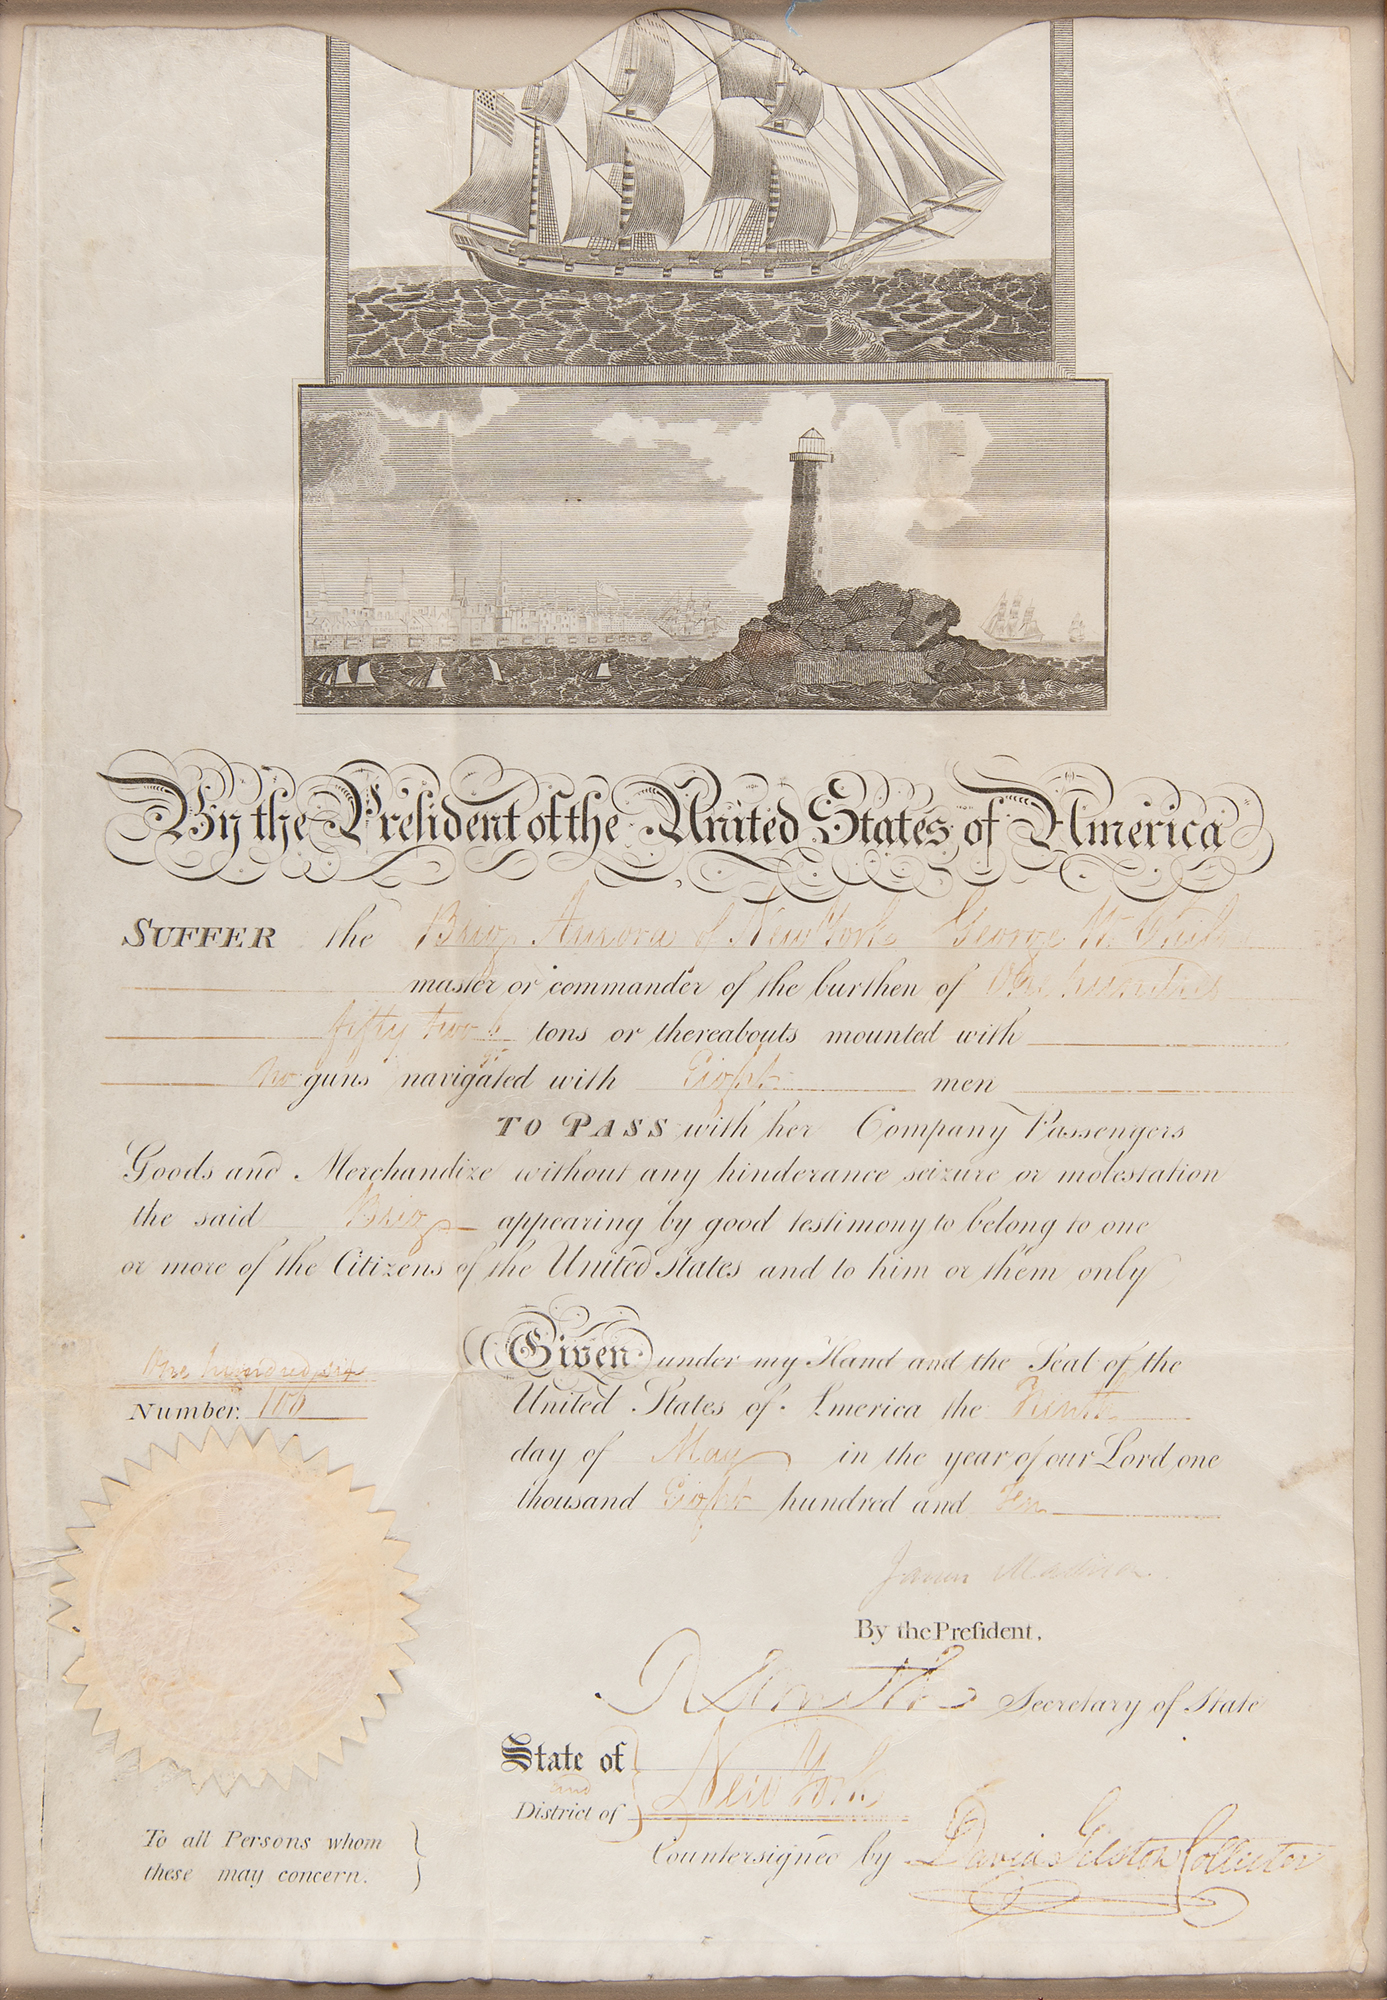 By the President of the United States of America
SUFFER the Brig Aurora of New York George W.
master or commander of the burthen of One hundred
fifty two tons or thereabouts mounted with
no guns navigated with Eight men
TO PASS with her Company Passengers
Goods and Merchandize without any hinderance seizure or molestation
the said Brig appearing by good testimony to belong to one
or more of the Citizens of the United States and to him or them only
One hundred six
Number.
Given under my Hand and the Seal of the
United States of America the
day of May in the year of our Lord one
thousand Eight hundred and Ten
James Madison
By the President,
R Smith Secretary of State
State of
and
District of
New York
Countersigned by David Gelston Collector
To all Persons whom
these may concern.